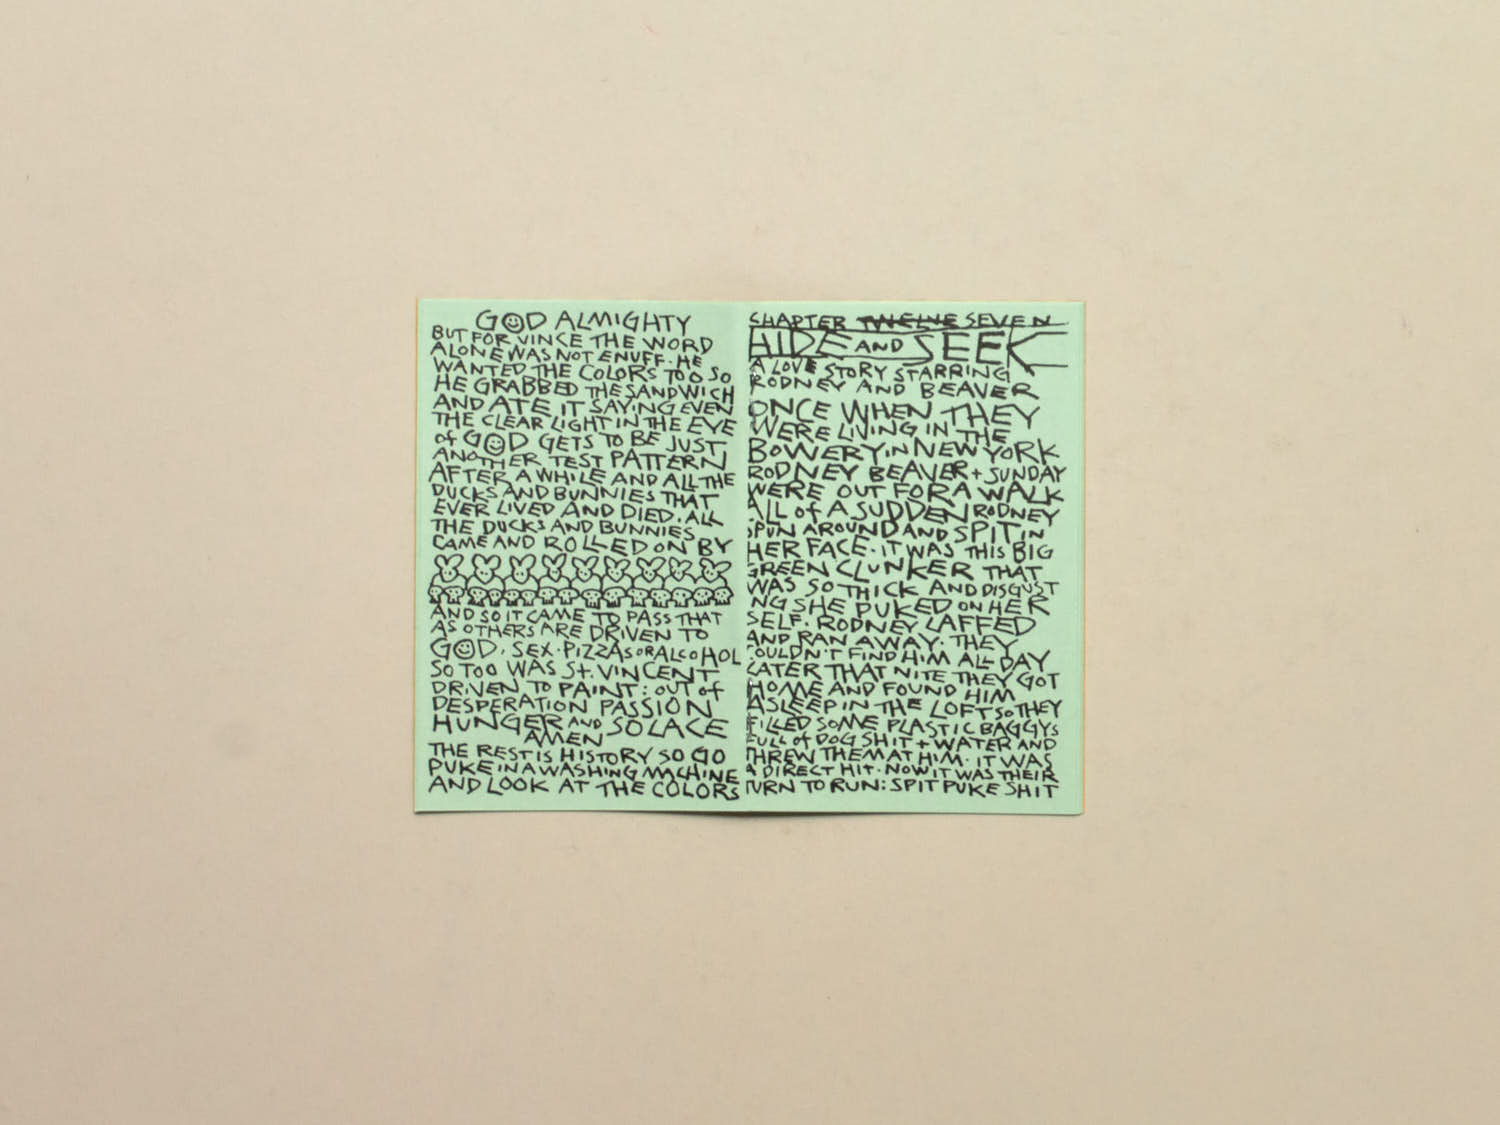 GOD ALMIGHTY
BUT FOR VINCE THE WORD
ALONE WAS NOT ENUFF. HE
WANTED THE COLORS TOO SO
HE GRABBED THE SANDWICH
AND ATE IT SAYING EVEN
THE CLEAR LIGHT IN THE EYE
of GOD GETS TO BE JUST
ANOTHER TEST PATTERN
AFTER A WHILE AND ALL THE
DUCKS AND BUNNIES THAT
EVER LIVED AND DIED. ALL
THE DUCKS AND BUNNIES
CAME AND ROLLED ON BY
AND SO IT CAME TO PASS THAT
AS OTHERS ARE DRIVEN TO
GOD. SEX. PIZZAS OR ALCOHOL
SO TOO WAS St. VINCENT
DRIVEN TO PAINT: OUT of
DESPERATION PASSION
HUNGER AND SOLACE
AMEN
THE REST IS HISTORY SO GO
PUKE IN A WASHING MACHINE
AND LOOK AT THE COLORS
CHAPTER TWELVE SEVEN
HIDE AND SEEK
A LOVE STORY STARRING
RODNEY AND BEAVER
ONCE WHEN THEY
WERE LIVING IN THE
BOWERY IN NEW YORK
RODNEY BEAVER + SUNDAY
WERE OUT FOR A WALK
ALL of A SUDDEN RODNEY
SPUN AROUND AND SPIT IN
HER FACE. IT WAS THIS BIG
GREEN CLUNKER THAT
WAS SO THICK AND DISGUST
ING SHE PUKED ON HER
SELF. RODNEY LAFFED
AND RAN AWAY. THEY
COULDN'T FIND HIM ALL DAY
LATER THAT NITE THEY GOT
HOME AND FOUND HIM
ASLEEP IN THE LOFT SO THEY
FILLED SOME PLASTIC BAGGYS
FULL of DOG SHIT + WATER AND
THREW THEM AT HIM. IT WAS
A DIRECT HIT. NOW IT WAS THEIR
TURN TO RUN: SPIT PUKE SHIT